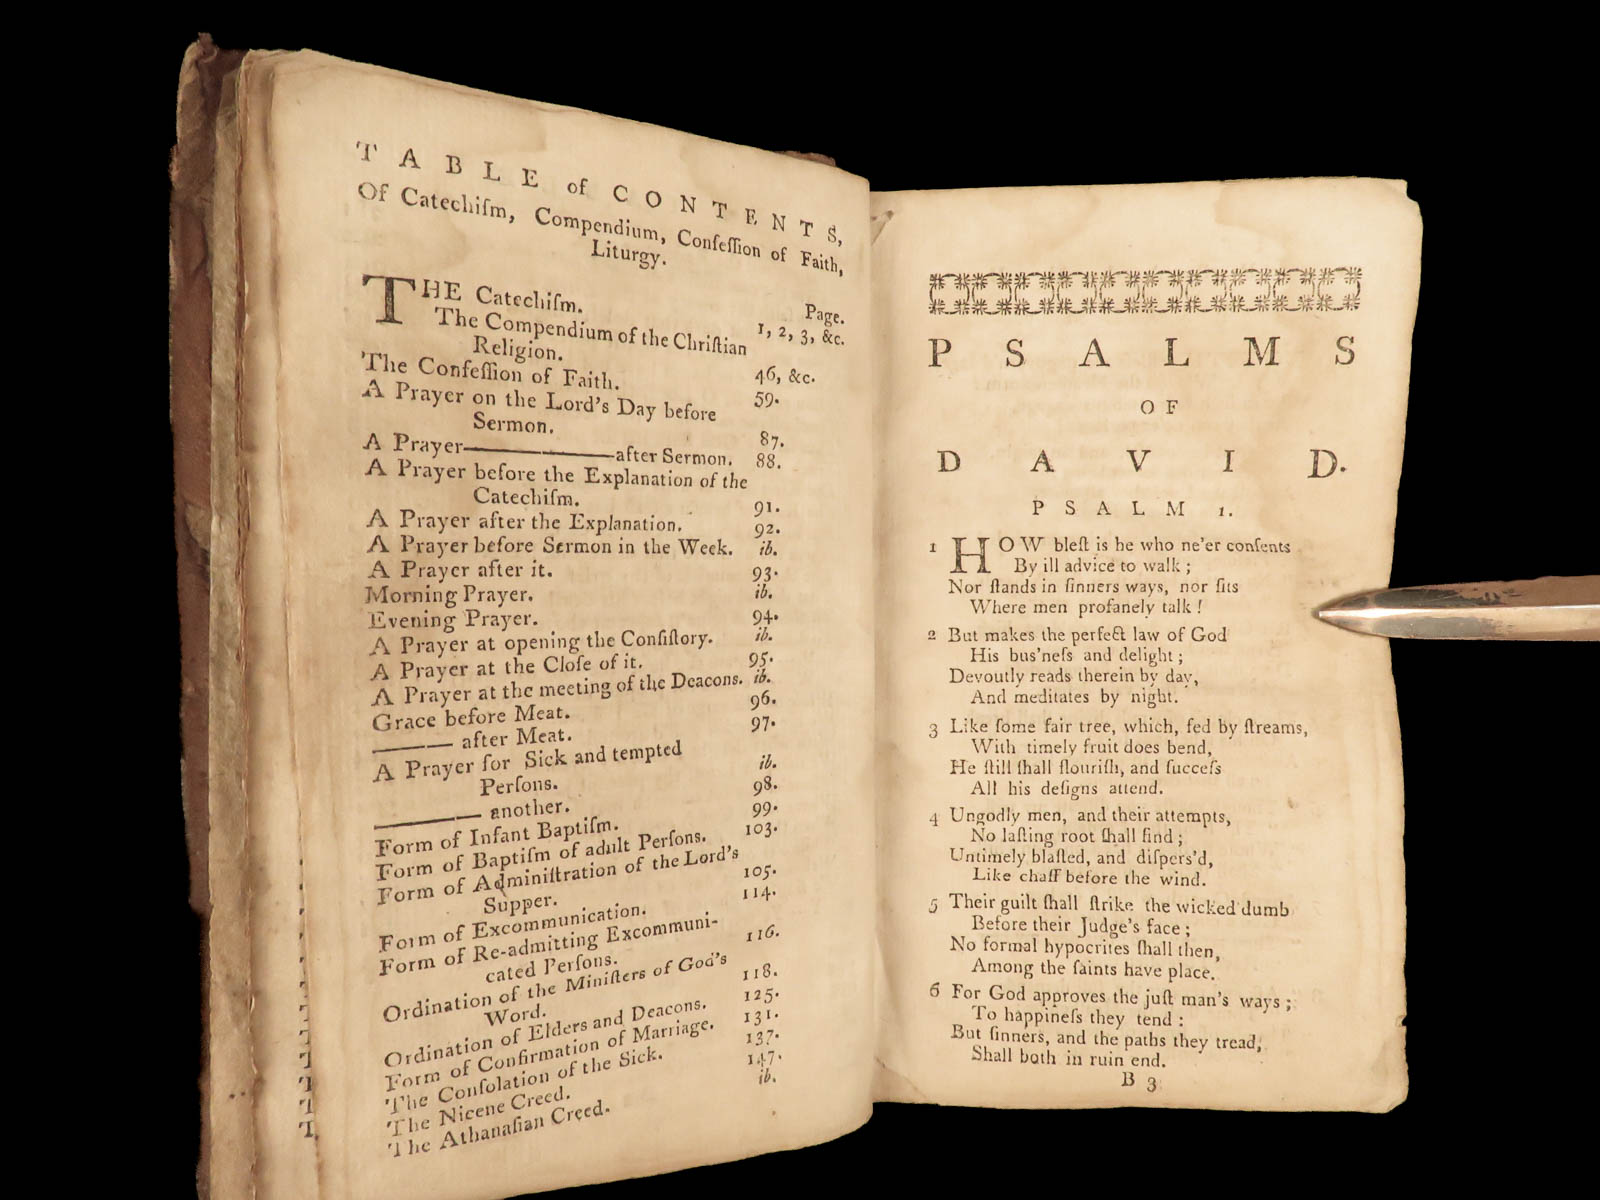 TABLE of CONTENTS,
Of Catechiſm, Compendium, Confeſſion of Faith,
Liturgy.
Page.
THE Catechiſm. 1, 2, 3, &c.
The Compendium of the Chriſtian
Religion. 46, &c.
The Confeſſion of Faith. 59.
A Prayer on the Lord's Day before
Sermon. 87.
A Prayer————after Sermon. 88.
A Prayer before the Explanation of the
Catechiſm. 91.
A Prayer after the Explanation. 92.
A Prayer before Sermon in the Week. ib.
A Prayer after it. 93.
Morning Prayer. ib.
Evening Prayer. 94.
A Prayer at opening the Conſiſtory. ib.
A Prayer at the Cloſe of it. 95.
A Prayer at the meeting of the Deacons. ib.
Grace before Meat. 96.
——— after Meat. 97.
A Prayer for Sick and tempted
Perſons. ib.
——— another. 98.
Form of Infant Baptiſm. 99.
Form of Baptiſm of adult Perſons. 103.
Form of Adminiſtration of the Lord's
Supper. 105.
Form of Excommunication. 114.
Form of Re-admitting Excommuni-
cated Perſons. 116.
Ordination of the Miniſters of God's
Word. 118.
Ordination of Elders and Deacons. 125.
Form of Confirmation of Marriage. 131.
The Conſolation of the Sick. 137.
The Nicene Creed. 147.
The Athanaſian Creed. ib.
PSALMS
OF
DAVID.
PSALM 1.
1 HOW bleſt is he who ne'er conſents
By ill advice to walk;
Nor ſtands in ſinners ways, nor ſits
Where men profanely talk!
2 But makes the perfect law of God
His bus'neſs and delight;
Devoutly reads therein by day,
And meditates by night.
3 Like ſome fair tree, which, fed by ſtreams,
With timely fruit does bend,
He ſtill ſhall flouriſh, and ſucceſs
All his deſigns attend.
4 Ungodly men, and their attempts,
No laſting root ſhall find;
Untimely blaſted, and diſpers'd,
Like chaff before the wind.
5 Their guilt ſhall ſtrike the wicked dumb
Before their Judge's face;
No formal hypocrites ſhall then,
Among the ſaints have place.
6 For God approves the juſt man's ways;
To happineſs they tend:
But ſinners, and the paths they tread,
Shall both in ruin end.
B 3